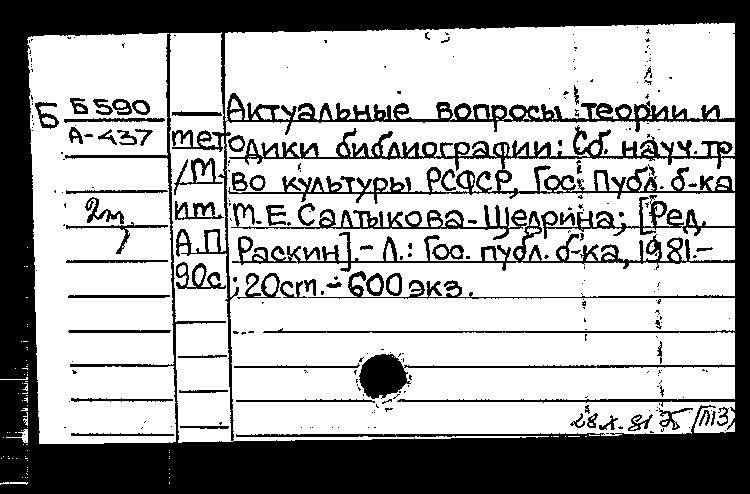 Б Б590 Актуальные вопросы теории и
А-437 методики библиографии: Сб. науч. тр
/М-во культуры РСФСР, Гос. Публ. б-ка
2т. им. М.Е. Салтыкова-Щедрина; [Ред.
А.П. Раскин].- Л.: Гос. публ. б-ка, 1981.-
90с.; 20см.- 600 экз.
28.X.81